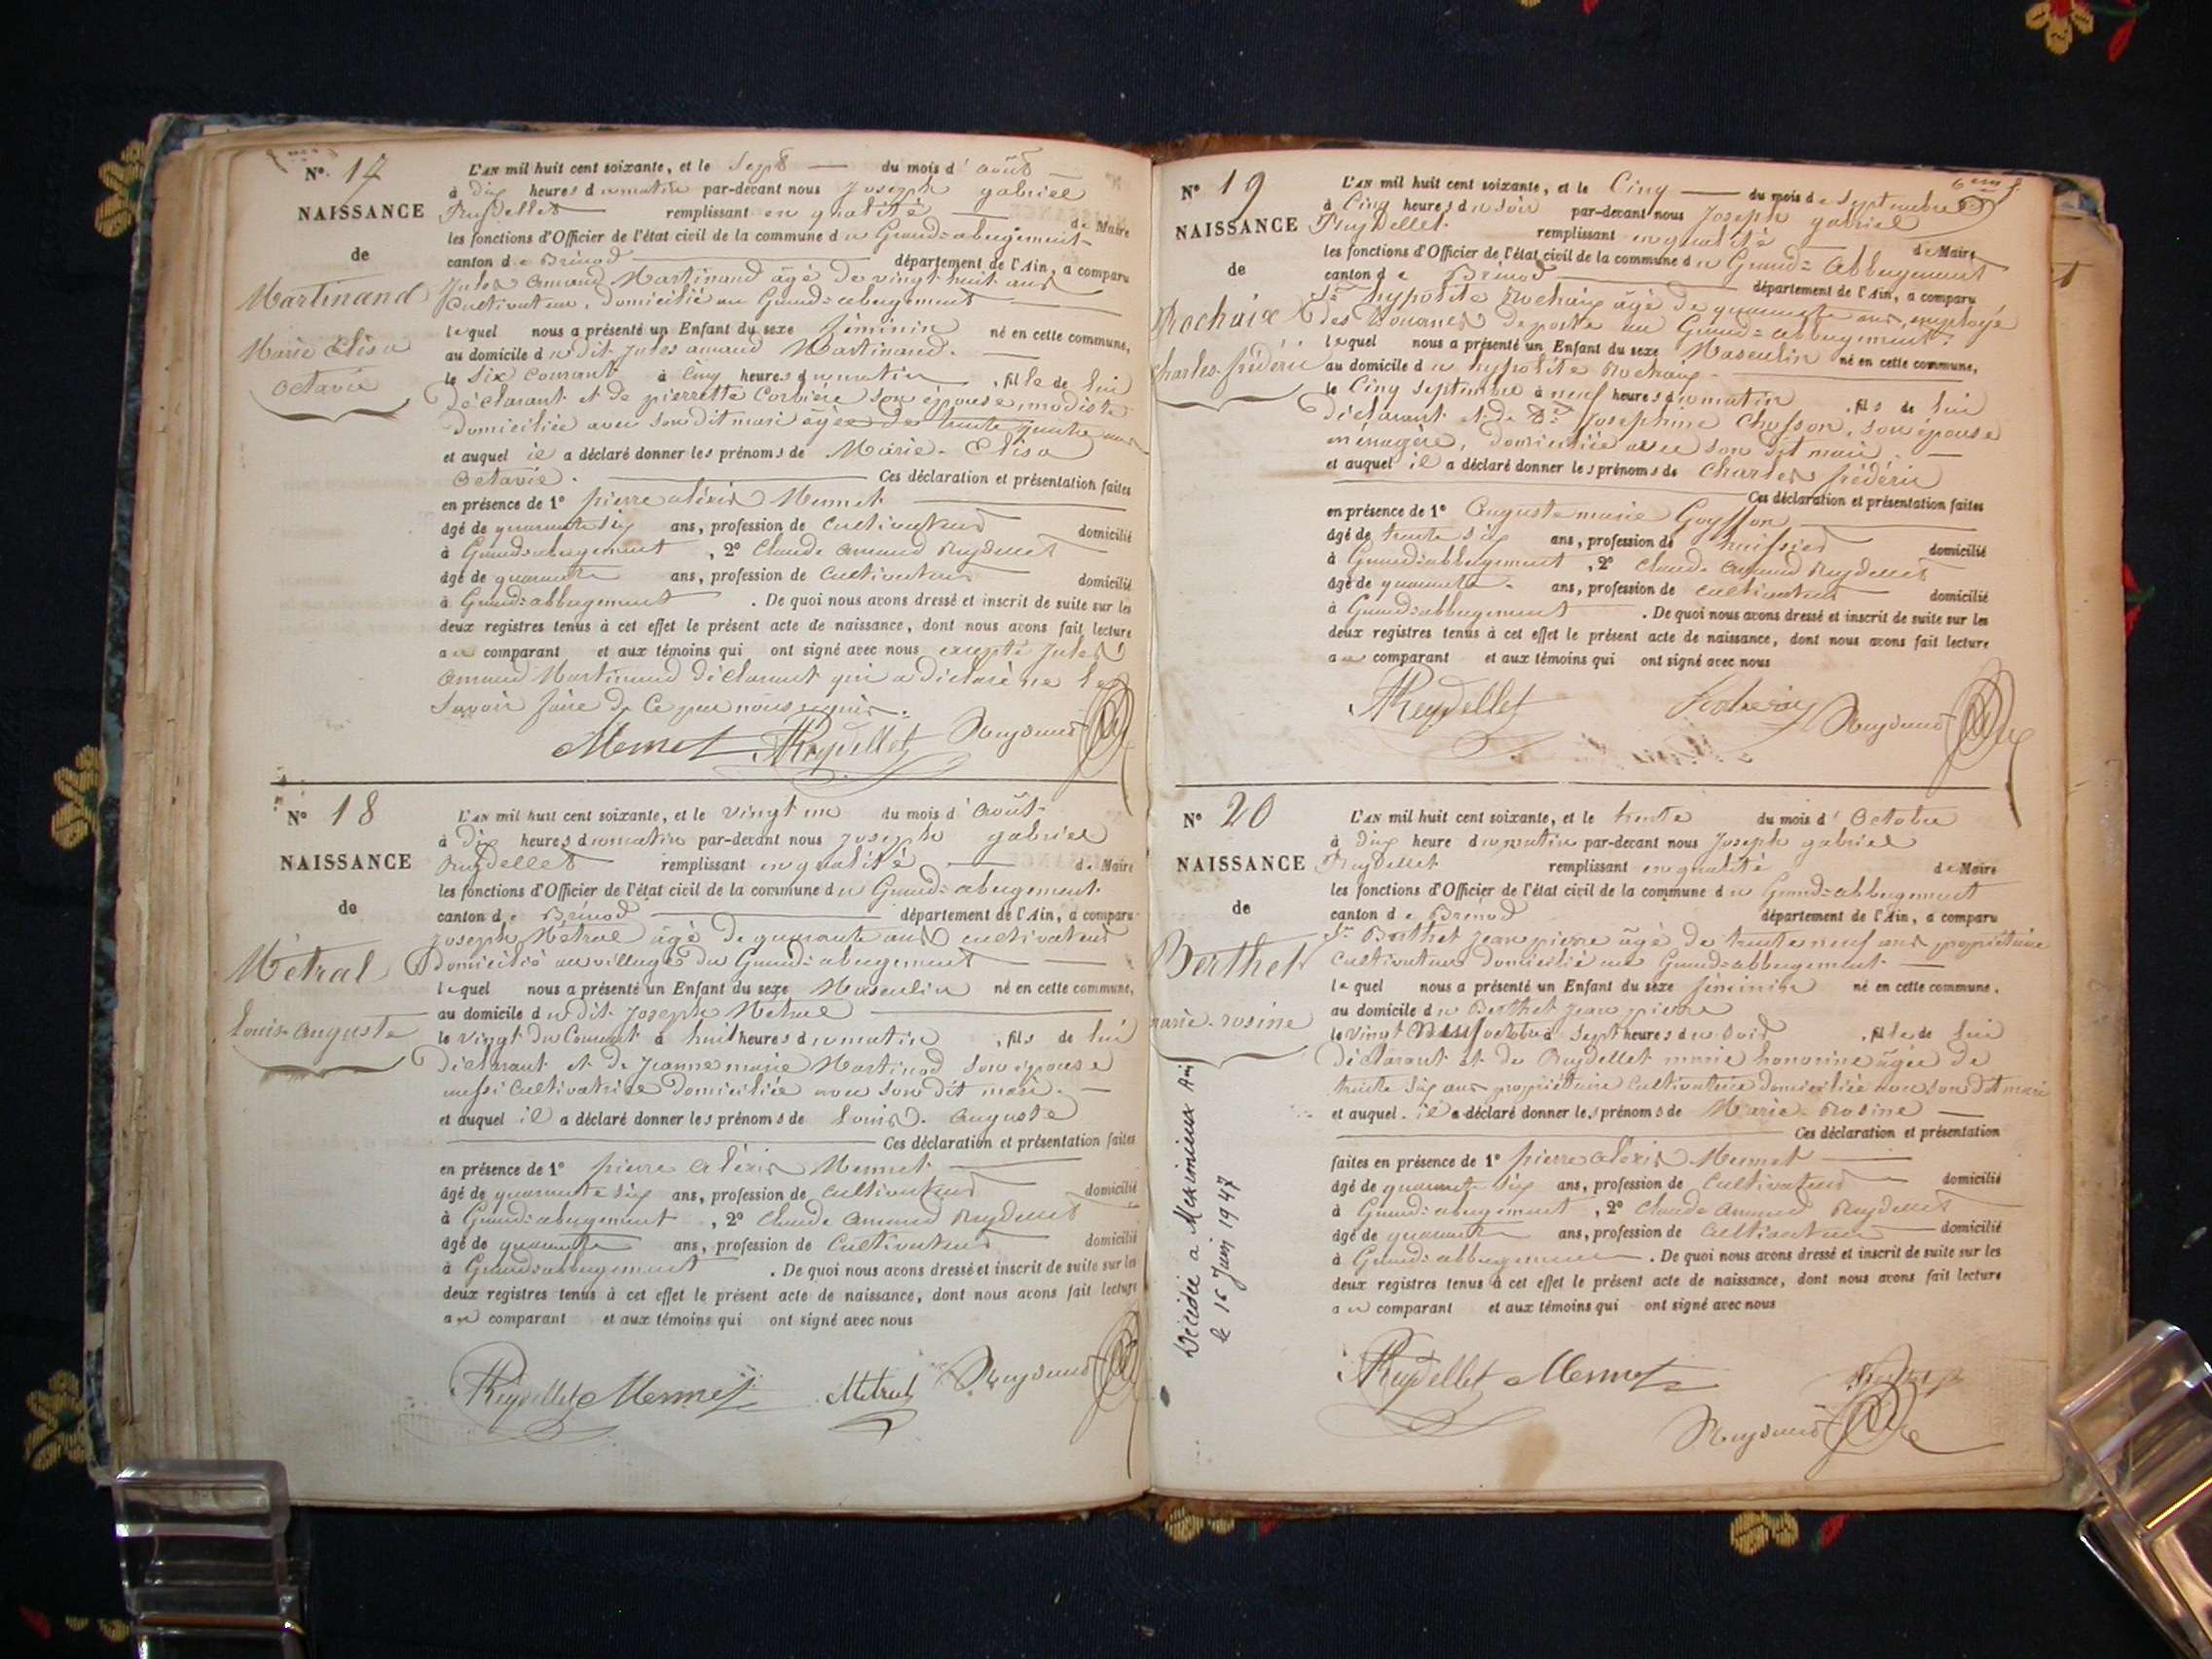 N° 17
NAISSANCE
de
Martinand
Marie Elisa
Octavie
L'AN mil huit cent soixante, et le Sept du mois d'août
à dix heures du matin par-devant nous Joseph gabriel
Ruydellet remplissant en qualité de Maire
les fonctions d'Officier de l'état civil de la commune du Grand=abergement
canton de Brénod département de l'Ain, a comparu
Jules Amand Martinand âgé de vingt huit ans
Cultivateur, domicilié au Grand=abergement
lequel nous a présenté un Enfant du sexe féminin né en cette commune,
au domicile du dit Jules amand Martinand.
le Six Courant à cinq heures du matin, fille de lui
déclarant et de pierrette Corbière son épouse, modiste
domiciliée avec son dit mari âgée de trente quatre ans
et auquel il a déclaré donner les prénoms de Marie-Elisa
Octavie. Ces déclaration et présentation faites
en présence de 1° pierre alexis Mermet
âgé de quarante six ans, profession de Cultivateur domicilié
à Grand=abergement, 2° Claude Amand Ruydellet
âgé de quarante ans, profession de Cultivateur domicilié
à Grand=abbergement. De quoi nous avons dressé et inscrit de suite sur les
deux registres tenus à cet effet le présent acte de naissance, dont nous avons fait lecture
au comparant et aux témoins qui ont signé avec nous excepté Jules
Amand Martinand déclarant qui a déclaré ne le
Savoir faire de ce par nous requis.
Mermet Ruydellet
N° 18
NAISSANCE
de
Métral
Louis-Auguste
L'AN mil huit cent soixante, et le vingt un du mois d'Août
à dix heures du matin par-devant nous Joseph gabriel
Ruydellet remplissant en qualité de Maire
les fonctions d'Officier de l'état civil de la commune du Grand=abergement
canton de Brénod département de l'Ain, a comparu
Joseph Métral âgé de quarante ans cultivateur
domicilié au village du Grand=abergement
lequel nous a présenté un Enfant du sexe Masculin né en cette commune,
au domicile du dit Joseph Métral
le vingt du Courant à huit heures du matin, fils de lui
déclarant et de Jeanne marie Martinod son épouse
aussi Cultivatrice domiciliée avec son dit mari.
et auquel il a déclaré donner les prénoms de Louis. Auguste
Ces déclaration et présentation faites
en présence de 1° pierre Alexis Mermet
âgé de quarante six ans, profession de Cultivateur domicilié
à Grand=abergement, 2° Claude Amand Ruydellet
âgé de quarante ans, profession de Cultivateur domicilié
à Grand=abbergement. De quoi nous avons dressé et inscrit de suite sur les
deux registres tenus à cet effet le présent acte de naissance, dont nous avons fait lecture
au comparant et aux témoins qui ont signé avec nous
Ruydellet Mermet Métral
N° 19
NAISSANCE
de
Rochaix
Charles frédéric
L'AN mil huit cent soixante, et le Cinq du mois de Septembre
à Cinq heures du soir par-devant nous Joseph gabriel
Ruydellet remplissant en qualité de Maire
les fonctions d'Officier de l'état civil de la commune du Grand=Abbergement
canton de Brénod département de l'Ain, a comparu
Sr hypolite Rochaix âgé de quarante ans, employé
des Douanes de poste au Grand=abbergement.
lequel nous a présenté un Enfant du sexe Masculin né en cette commune,
au domicile du hypolite Rochaix
le Cinq Septembre à neuf heures du matin, fils de lui
déclarant et de De Josephine Chosson, son épouse
ménagère, domiciliée avec son dit mari.
et auquel il a déclaré donner les prénoms de Charles frédéric
Ces déclaration et présentation faites
en présence de 1° Auguste marie Goyffon
âgé de trente six ans, profession de huissier domicilié
à Grand=abbergement, 2° Claude Amand Ruydellet
âgé de quarante ans, profession de cultivateur domicilié
à Grand=abbergement. De quoi nous avons dressé et inscrit de suite sur les
deux registres tenus à cet effet le présent acte de naissance, dont nous avons fait lecture
au comparant et aux témoins qui ont signé avec nous
Ruydellet
N° 20
NAISSANCE
de
Berthet
marie-rosine
Décédée à Meximieux Ain
le 15 Juin 1947
L'AN mil huit cent soixante, et le trente du mois d'Octobre
à dix heure du matin par-devant nous Joseph gabriel
Ruydellet remplissant en qualité de Maire
les fonctions d'Officier de l'état civil de la commune du Grand=abbergement
canton de Brénod département de l'Ain, a comparu
Sr Berthet Jean pierre âgé de trente neuf ans propriétaire
Cultivateur domicilié au Grand=abbergement.
lequel nous a présenté un Enfant du sexe féminin né en cette commune.
au domicile du Berthet Jean pierre
le vingt neuf octobre à Sept heures du Soir, fille de lui
déclarant et de Ruydellet marie honorine âgée de
trente six ans propriétaire Cultivatrice domiciliée avec son dit mari
et auquel il a déclaré donner les prénoms de Marie-Rosine
Ces déclaration et présentation
faites en présence de 1° pierre alexis Mermet
âgé de quarante six ans, profession de Cultivateur domicilié
à Grand=abergement, 2° Claude Amand Ruydellet
âgé de quarante ans, profession de Cultivateur domicilié
à Grand=abbergement. De quoi nous avons dressé et inscrit de suite sur les
deux registres tenus à cet effet le présent acte de naissance, dont nous avons fait lecture
au comparant et aux témoins qui ont signé avec nous
Ruydellet Mermet